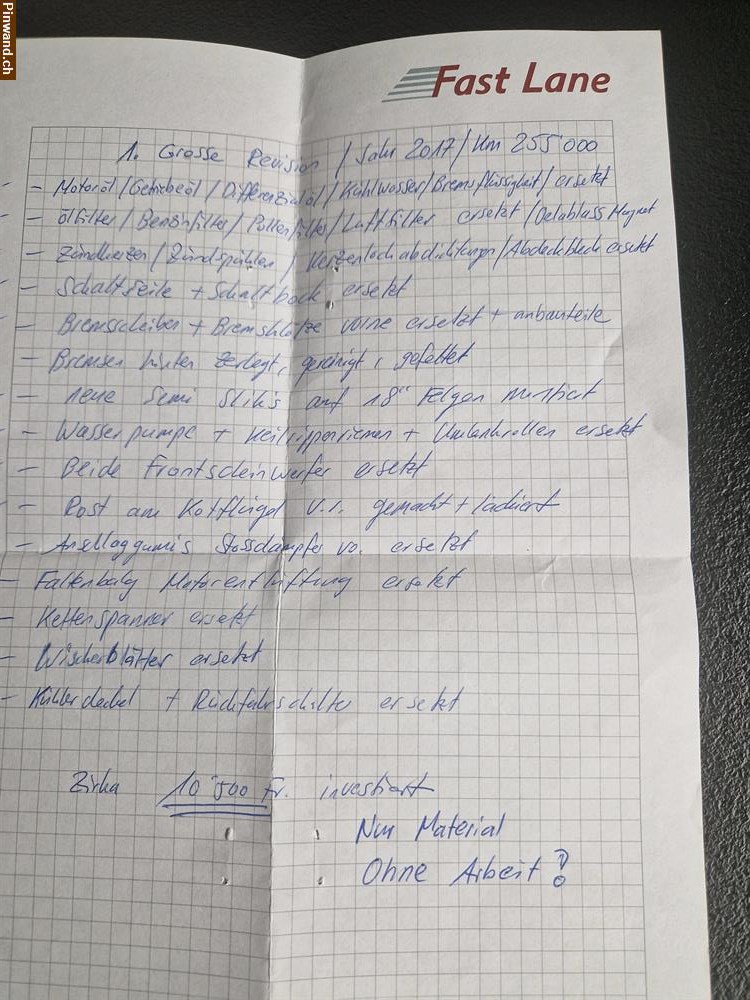 Pinwand.ch
Fast Lane
1. Grosse Revision / Jahr 2017 / Km 255'000
- Motoröl / Getriebeöl / Differenzialöl / Kühlwasser / Bremsflüssigkeit / ersetzt
- Ölfilter / Benzinfilter / Pollenfilter / Luftfilter ersetzt / Oelablass Magnet
- Zündkerzen / Zündspühlen / Kerzenlochabdichtungen / Abdeckblech ersetzt
- Schaltseile + Schaltbock ersetzt
- Bremsscheiben + Bremsklötze vorne ersetzt + anbauteile
- Bremsen hinten zerlegt, gereinigt, gefettet
- neue Semi Sliks auf 18" Felgen montiert
- Wasserpumpe + Keilrippenriemen + Umlenkrollen ersetzt
- Beide Frontscheinwerfer ersetzt
- Rost am Kotflügel v.r. gemacht + lackiert
- Anschlaggumis Stossdämpfer vo. ersetzt
- Faltenbalg Motorentlüftung ersetzt
- Kettenspanner ersetzt
- Wischerblätter ersetzt
- Kühlerdeckel + Rückfahrschalter ersetzt
Zirka 10'500 Fr. investiert
Nur Material
Ohne Arbeit !